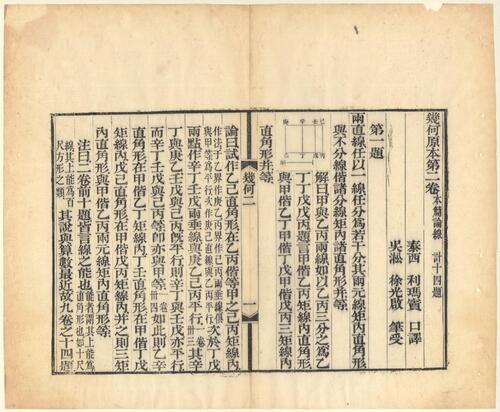 幾何原本第二卷 本篇論線 計十四題
泰西 利瑪竇 口譯
吳淞 徐光啟 筆受
第一題
兩直線任以一線任分為若干分其兩元線矩內直角形
與不分線偕諸分線矩內諸直角形并等
庚 辛 壬 己
甲
乙 丁 戊 丙
解曰甲與乙丙兩線如以乙丙三分之為乙
丁丁戊戊丙題言甲偕乙丙矩線內直角形
與甲偕乙丁甲偕丁戊甲偕戊丙三矩線內
直角形并等
幾何二
一
論曰試作乙己直角形在乙丙偕等甲之己丙矩線內
作法于乙界作庚乙丙界作己丙兩垂線俱與甲等為平行次作庚己直線與乙丙平行 次於丁戊
兩點作辛丁壬戊兩垂線與庚乙己丙平行 一卷卅三 其辛
丁與庚乙壬戊與己丙旣平行則辛丁與壬戊亦平行
而辛丁壬戊與己丙等即亦與甲等 一卷卅四 如此則乙辛
直角形在甲偕乙丁矩線內丁壬直角形在甲偕丁戊
矩線內戊己直角形在甲偕戊丙矩線內并之則三矩
內直角形與甲偕乙丙兩元線矩內直角形等
注曰二卷前十題皆言線之能也 能者謂其上能為直角形也如十尺
線其上能為百尺方形之類 其說與算數最近故九卷之十四題